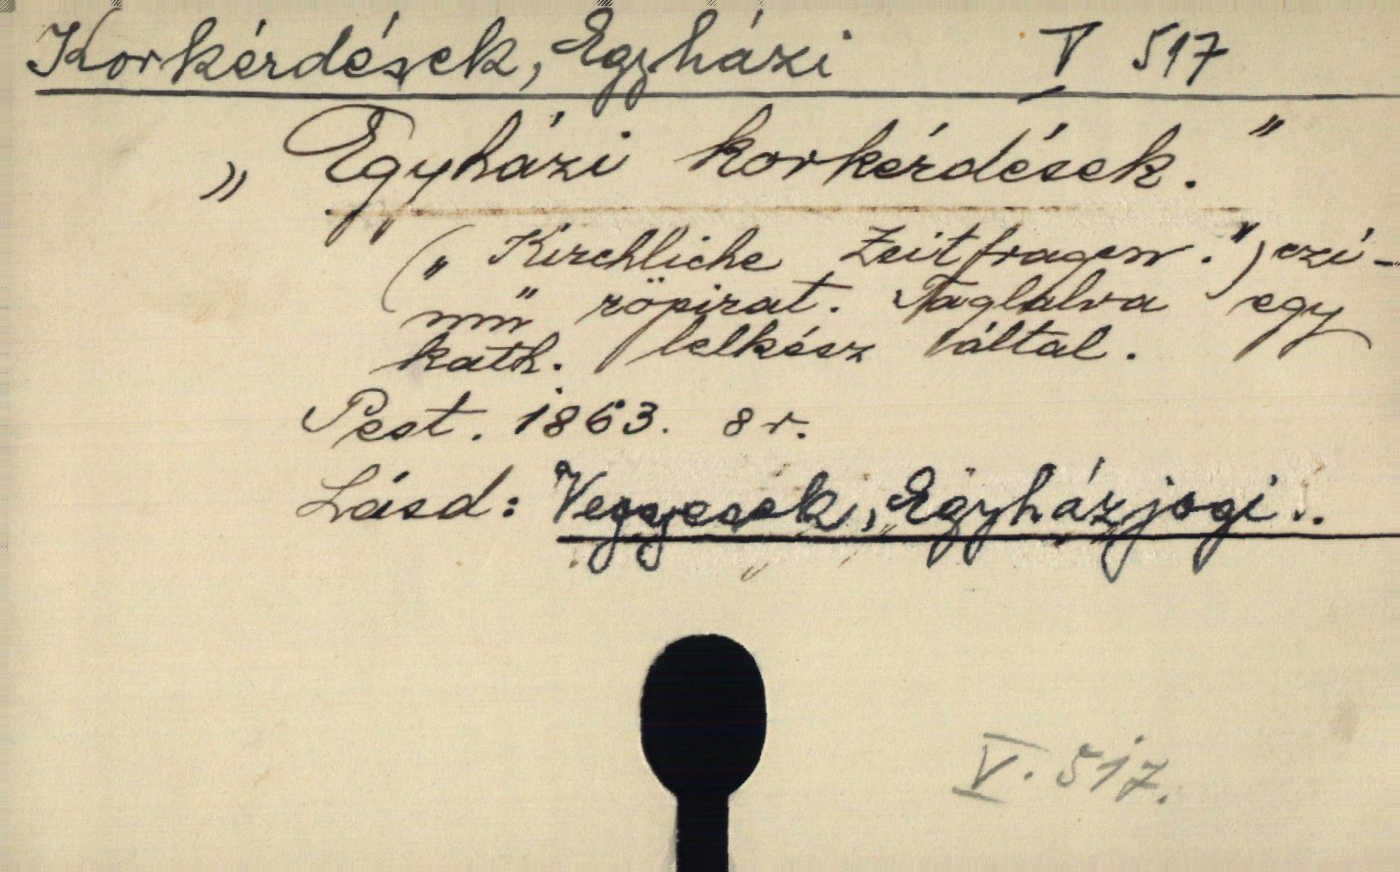 Korkérdések, Egyházi V 517
„Egyházi korkérdések."
(„Kirchliche Zeitfragen.") czí-
mű röpirat. Taglalva egy
kath. lelkész által.
Pest. 1863. 8r.
Lásd: Vegyesek, Egyházjogi..
V. 517.